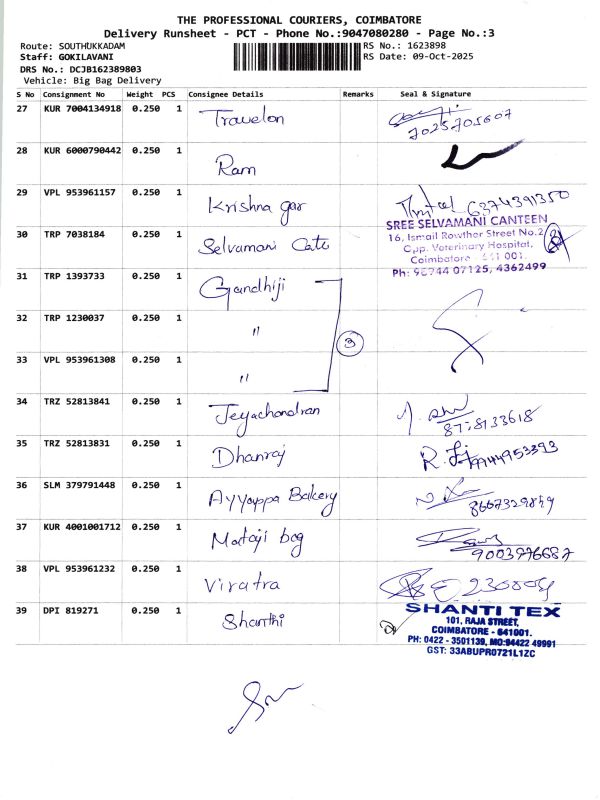 THE PROFESSIONAL COURIERS, COIMBATORE
Delivery Runsheet - PCT - Phone No.:9047080280 - Page No.:3
Route: SOUTHUKKADAM
RS No.: 1623898
Staff: GOKILAVANI
RS Date: 09-Oct-2025
DRS No.: DCJB162389803
Vehicle: Big Bag Delivery
S No Consignment No Weight PCS Consignee Details Remarks Seal & Signature
27 KUR 7004134918 0.250 1 Travelon
7025705607
28 KUR 6000790442 0.250 1 Ram
29 VPL 953961157 0.250 1 Krishna gar 6374391350
SREE SELVAMANI CANTEEN
30 TRP 7038184 0.250 1 Selvamani Cate
16, Ismail Rowther Street No.2
Opp. Veterinary Hospital,
Coimbatore - 641 001.
Ph: 98744 07125, 4362499
31 TRP 1393733 0.250 1 Gandhiji
32 TRP 1230037 0.250 1 "
3
33 VPL 953961308 0.250 1 "
34 TRZ 52813841 0.250 1 Jeyachandran
8778133618
35 TRZ 52813831 0.250 1 Dhanraj
9944953393
36 SLM 379791448 0.250 1 Ayyappa Bakery
8667329849
37 KUR 4001001712 0.250 1 Mataji bag
9003976687
38 VPL 953961232 0.250 1 Viratra
39 DPI 819271 0.250 1 Shanthi
SHANTI TEX
101, RAJA STREET,
COIMBATORE - 641001.
PH: 0422 - 3501139, MO:94422 49991
GST: 33ABUPR0721L1ZC